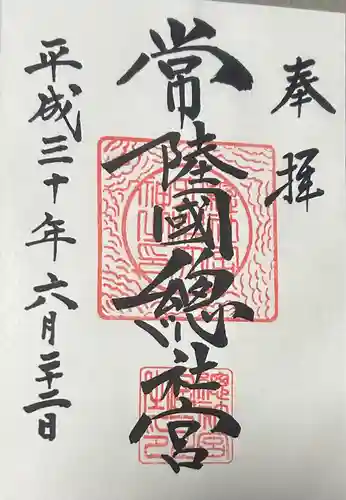 奉拝
常陸國總社宮
平成三十年六月二十二日